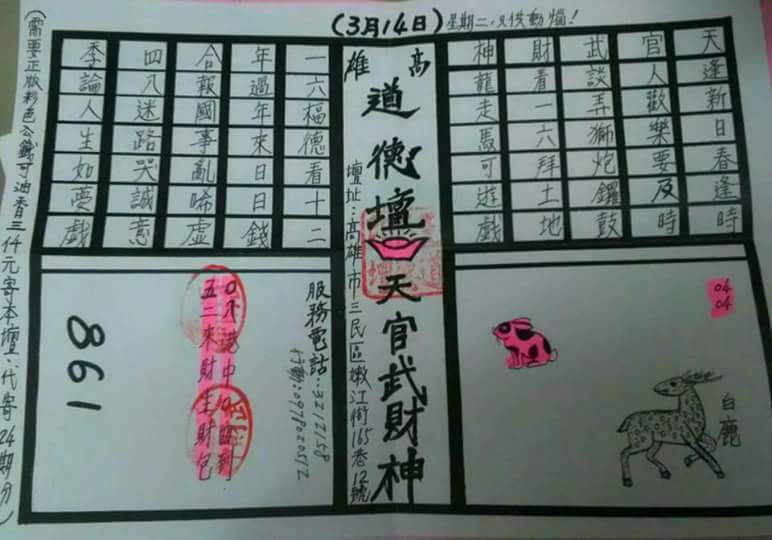 (3月14日) 星期二,只供動腦!
天逢新日春逢時
官人歡樂要及時
武談弄獅炮鑼鼓
財看一六拜土地
神龍走馬可遊戲
04
04
白鹿
高雄
道德壇
天官武財神
壇址:高雄市三民區嫩江街165巷12號
一六福德看十二
年過年來日日錢
合報國事亂唏虛
四八迷路哭誠意
季論人生如夢戲
服務電話:3212158
行動:0978020512
中
五二來財生財包
861
(需要正版彩色 可油香三仟元寄本壇.代寄24期分)